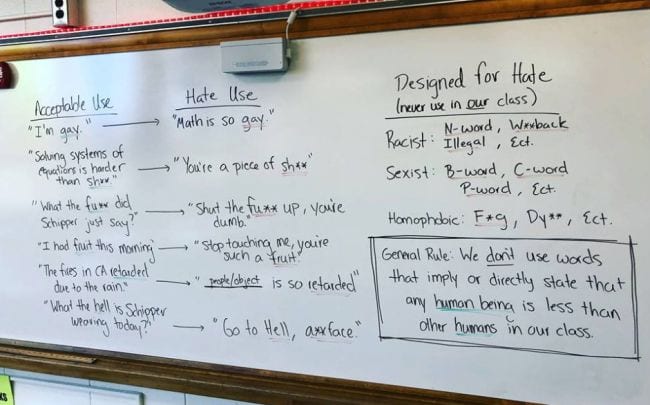 Acceptable Use
"I'm gay."
"Solving systems of
equations is harder
than sh**."
"What the fu** did
Schipper just say?"
"I had fruit this morning"
"The fires in CA retarded
due to the rain."
"What the hell is Schipper
wearing today?"
Hate Use
"Math is so gay."
"You're a piece of sh**"
"Shut the fu** up, you're
dumb."
"Stop touching me, you're
such a fruit."
"people/object is so retarded"
"Go to Hell, a**face."
Designed for Hate
(never use in our class)
Racist: N-word, W**back
Illegal, Ect.
Sexist: B-word, C-word
P-word, Ect.
Homophobic: F*g, Dy**, Ect.
General Rule: We don't use words
that imply or directly state that
any human being is less than
other humans in our class.